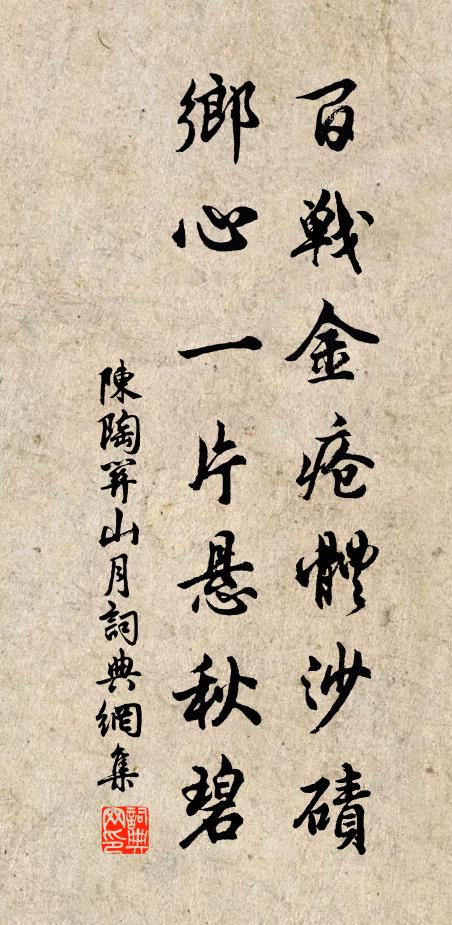 百戰金瘡體沙磧
鄉心一片悬秋碧
陳陶關山月詞典網集
詞典网印